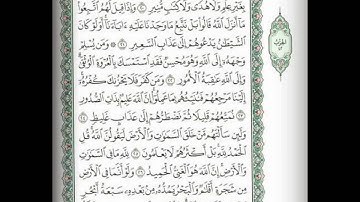 بِغَيْرِ عِلْمٍ وَلَا هُدًى وَلَا كِتَٰبٍ مُّنِيرٍ ٢٠ وَإِذَا قِيلَ لَهُمُ ٱتَّبِعُوا۟
مَآ أَنزَلَ ٱللَّهُ قَالُوا۟ بَلْ نَتَّبِعُ مَا وَجَدْنَا عَلَيْهِ ءَابَآءَنَآ أَوَلَوْ كَانَ
ٱلشَّيْطَٰنُ يَدْعُوهُمْ إِلَىٰ عَذَابِ ٱلسَّعِيرِ ٢١ وَمَن يُسْلِمْ
وَجْهَهُۥٓ إِلَى ٱللَّهِ وَهُوَ مُحْسِنٌ فَقَدِ ٱسْتَمْسَكَ بِٱلْعُرْوَةِ ٱلْوُثْقَىٰ
وَإِلَى ٱللَّهِ عَٰقِبَةُ ٱلْأُمُورِ ٢٢ وَمَن كَفَرَ فَلَا يَحْزُنكَ كُفْرُهُۥٓ
إِلَيْنَا مَرْجِعُهُمْ فَنُنَبِّئُهُم بِمَا عَمِلُوٓا۟ إِنَّ ٱللَّهَ عَلِيمٌۢ بِذَاتِ ٱلصُّدُورِ
٢٣ نُمَتِّعُهُمْ قَلِيلًا ثُمَّ نَضْطَرُّهُمْ إِلَىٰ عَذَابٍ غَلِيظٍ ٢٤
وَلَئِن سَأَلْتَهُم مَّنْ خَلَقَ ٱلسَّمَٰوَٰتِ وَٱلْأَرْضَ لَيَقُولُنَّ ٱللَّهُ قُلِ
ٱلْحَمْدُ لِلَّهِ بَلْ أَكْثَرُهُمْ لَا يَعْلَمُونَ ٢٥ لِلَّهِ مَا فِى ٱلسَّمَٰوَٰتِ
وَٱلْأَرْضِ إِنَّ ٱللَّهَ هُوَ ٱلْغَنِىُّ ٱلْحَمِيدُ ٢٦ وَلَوْ أَنَّمَا فِى ٱلْأَرْضِ
مِن شَجَرَةٍ أَقْلَٰمٌ وَٱلْبَحْرُ يَمُدُّهُۥ مِنۢ بَعْدِهِۦ سَبْعَةُ أَبْحُرٍ